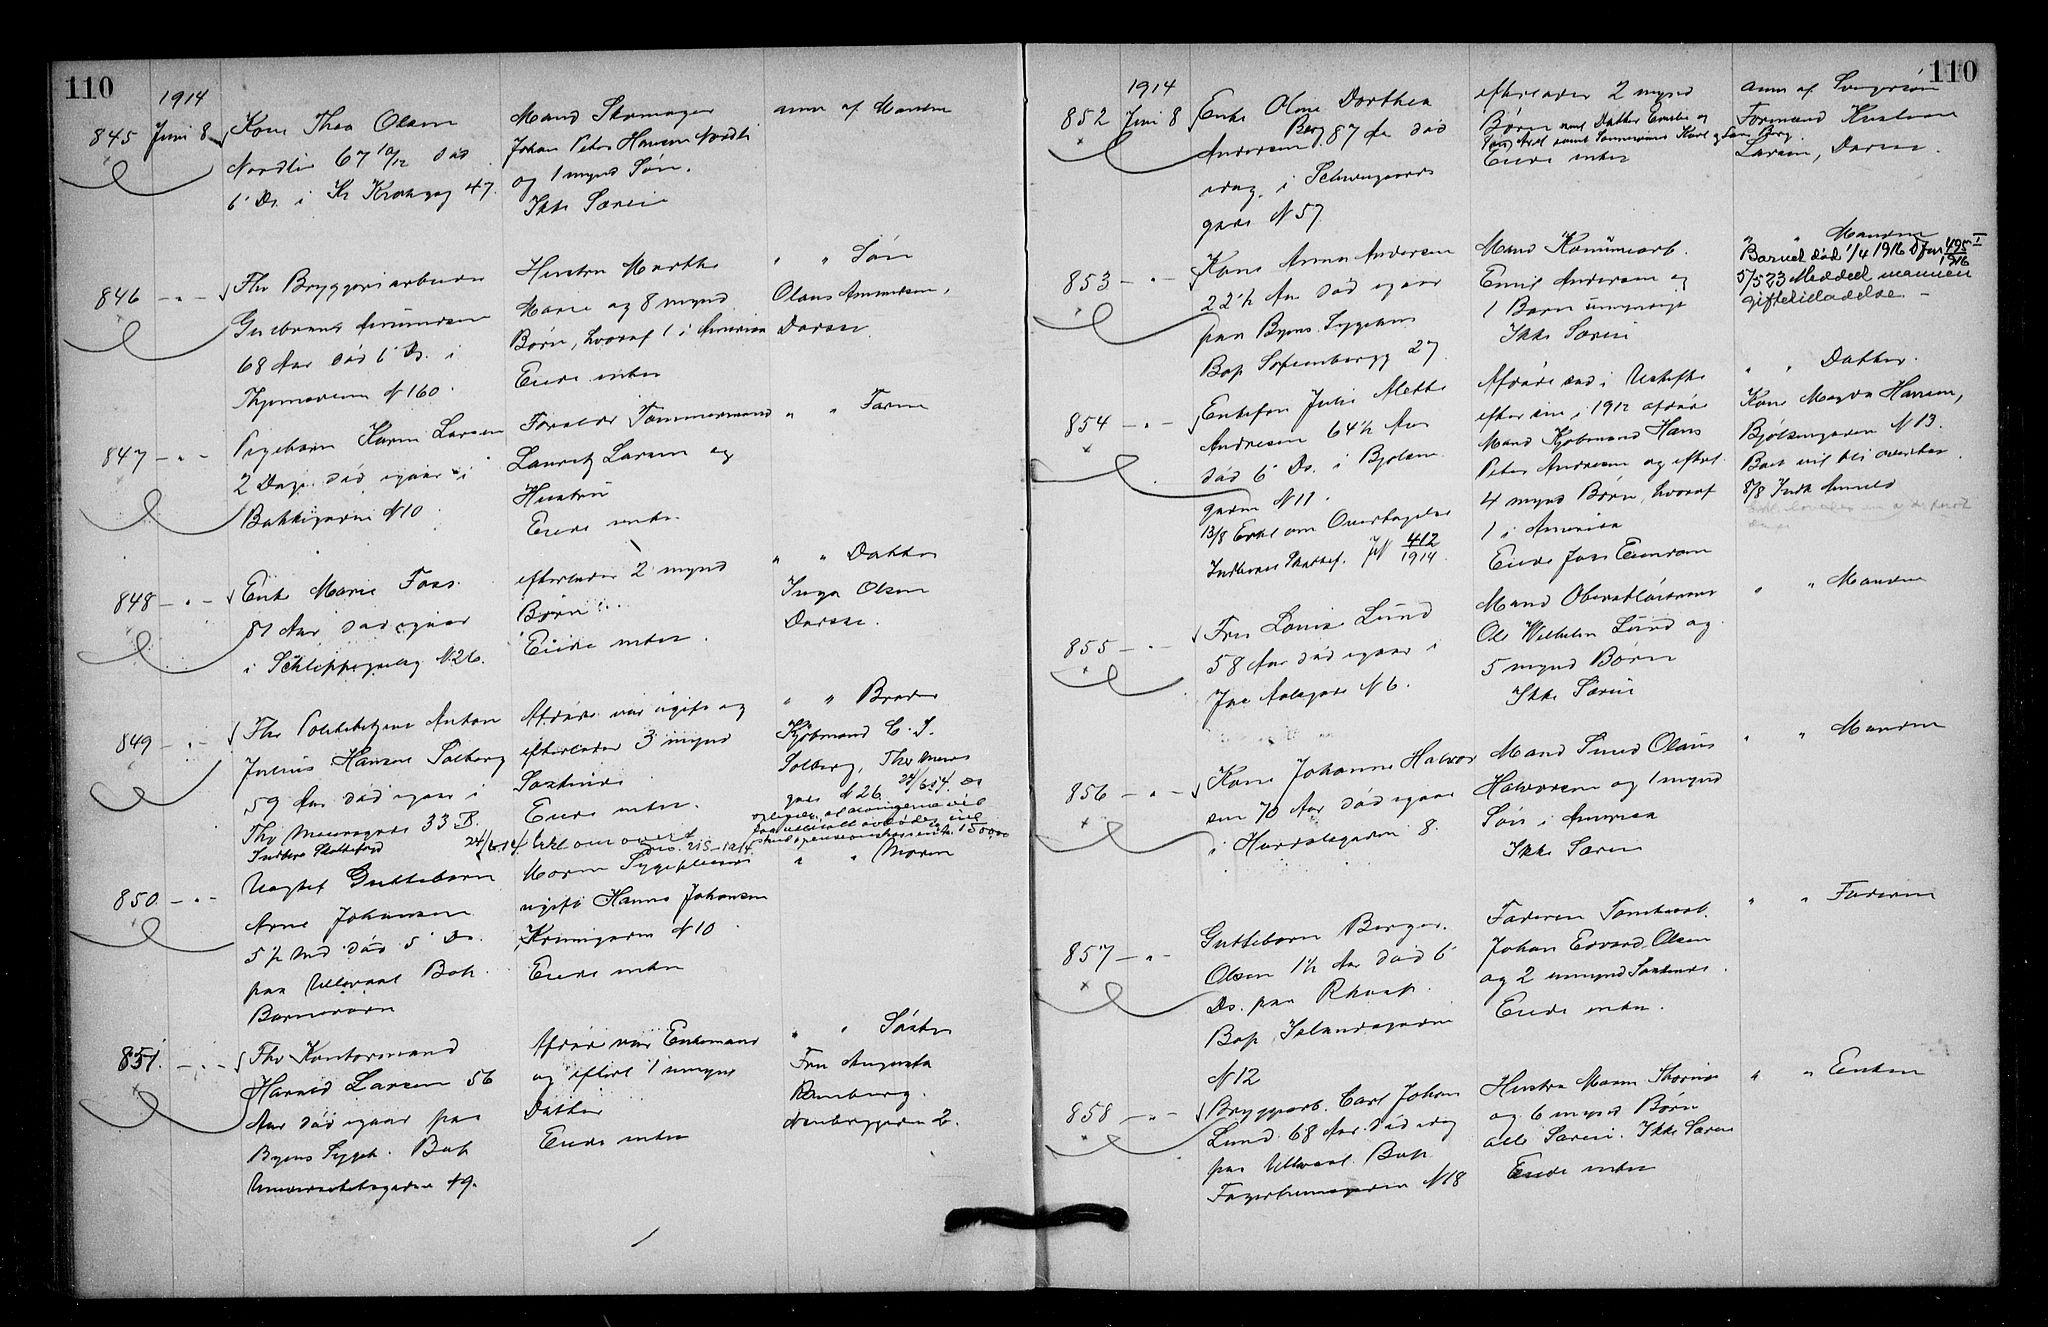 110
1914
845 Juni 8 Kone Thea Olsen
Nordlie 67 10/12 død
6 Ds. i Kr Kroghsg 47.
Mand Skomager
Johan Peter Hansen Nordli
og 1 mynd Søn.
Ikke Særeie
anm af Manden
846 - " - Fhv Bryggeriarbeider
Gulbrand Amundsen
68 Aar død 6 Ds. i
N 160.
Hustru Marthe
Marie og 8 mynd
Børn, hvoraf 1 i Amerika
Eiede intet
" " Søn
Olaus Amundsen,
Dersse.
847 - " - Pigebarn Karin Larsen
2 Dage død igaar i
Bakkegaden N 10
Forældre Tømmermand
Lauritz Larsen og
Hustru
Eiede intet.
" " Faren
848 - " - Enke Marie Foss
81 Aar død igaar
i Schleppegrellsg N 26.
efterlader 2 mynd
Børn
Eiede intet.
" " Datter
Inga Olsen
Dersse.
849 - " - Fhv Politibetjent Anton
Julius Hansen Solberg
59 Aar død igaar i
Thv Meiersgade 33 B.
Indberg Skattefogd 24/6.14
Afdøde var ugift og
efterlader 3 mynd
Søskende
Eiede intet.
Erkl om overt
" " Broder
Kjøbmand C. S.
Solberg, Thv Meiers
gade N 26. 24/6.14.
850 - " - Uægtef Guttebarn
Arne Johansen
5 1/2 Md død 5 Ds.
paa Ullevaal Bop.
Moren Sygepleierske
ugift Hanna Johansen
N 10
Eiede intet
" " Moren
851. - " - Fhv Kontormand
Harald Larsen 56
Aar død igaar paa
Byens Sygeh. Bop
Universitetsgaden 19.
Afdøde var Enkemand
og efterl 1 umynd
Datter
Eiede intet
" " Søster
Fru Augusta
2.
110
1914
852 Juni 8 Enke Oline Dorthea
Berg
Andersen 87 Aar død
idag i Schweigaards
gade N 57
efterlader 2 mynd
Børn
Eiede intet
anm af Svigersøn
Formand Kristian
Larsen, Dersse.
853 - " - Kone Anna Andersen
22 1/2 Aar død igaar
paa Byens Sygehus
Bop Sofienbergg 27
Mand Kommunearb.
Emil Andersen og
1 Barn umyndigt
Ikke Særeie
" " Manden
Barnet død 1/4 1916 Jnr 495/1916 I
5/5 23 Meddelt mannen
giftetilladelse. -
854 - " - Enkefru Julie Mette
Andresen 64 1/2 Aar
død 6 Ds. i Bjølsen
gaden N 11.
13/8 Erkl om Overtagelse
Indberet Skattef. JN 412/1914.
Afdøde sad i Uskifte
efter sin i 1912 afdøde
Mand Kjøbmand Hans
Peter Andresen og efterl
4 mynd Børn, hvoraf
1 i Amerika
Eiede fast Eiendom
" " Datter.
Kone Magda Hansen,
Bjølsengaden N 13.
Boet vil bli overtat
8/8 Indk Anmeld
855 - " - Fru Lovise Lund
58 Aar død igaar i
Jac Aalsgade N 6.
Mand Oberstløitnant
Ole Wilhelm Lund og
5 mynd Børn
Ikke Særeie
" " Manden
856 - " - Kone Johanne Halvor
sen 70 Aar død igaar
i Hurdalsgaden 8.
Mand Smed Olaus
Halvorsen og 1 mynd
Søn i Amerika
Ikke Særeie
" " Manden
857 - " - Guttebarn Birger
Olsen 1 1/2 Aar død 6
Ds. paa Rhosp.
Bop Islandsgaden
N 12
Faderen Tomtearb.
Johan Edvard Olsen
og 2 umynd Søskende.
Eiede intet.
" " Faderen
858 - " - Bryggeriarb. Carl Johan
Lund 68 Aar død idag
paa Ullevaal Bop
Fagerheimsgaden N 18
Hustru Maren
og 6 mynd Børn
Ikke Særeie
Eiede intet
" " Enken